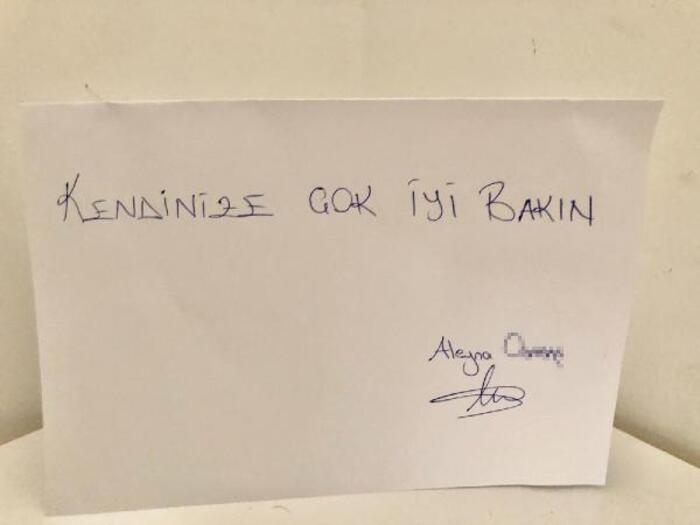 KENDİNİZE ÇOK İYİ BAKIN
Aleyna